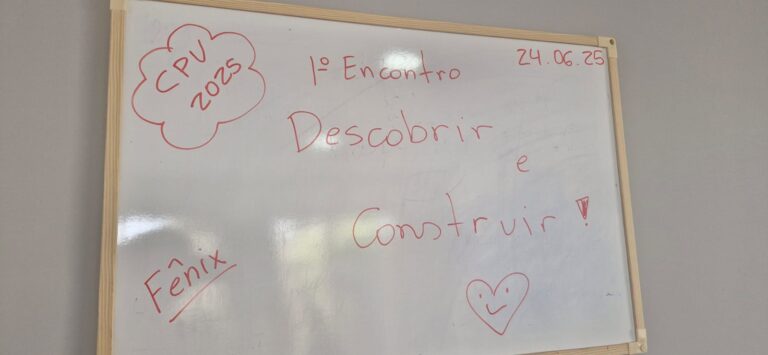 CPV
2025
1º Encontro
24.06.25
Descobrir
e
Construir!
Fênix